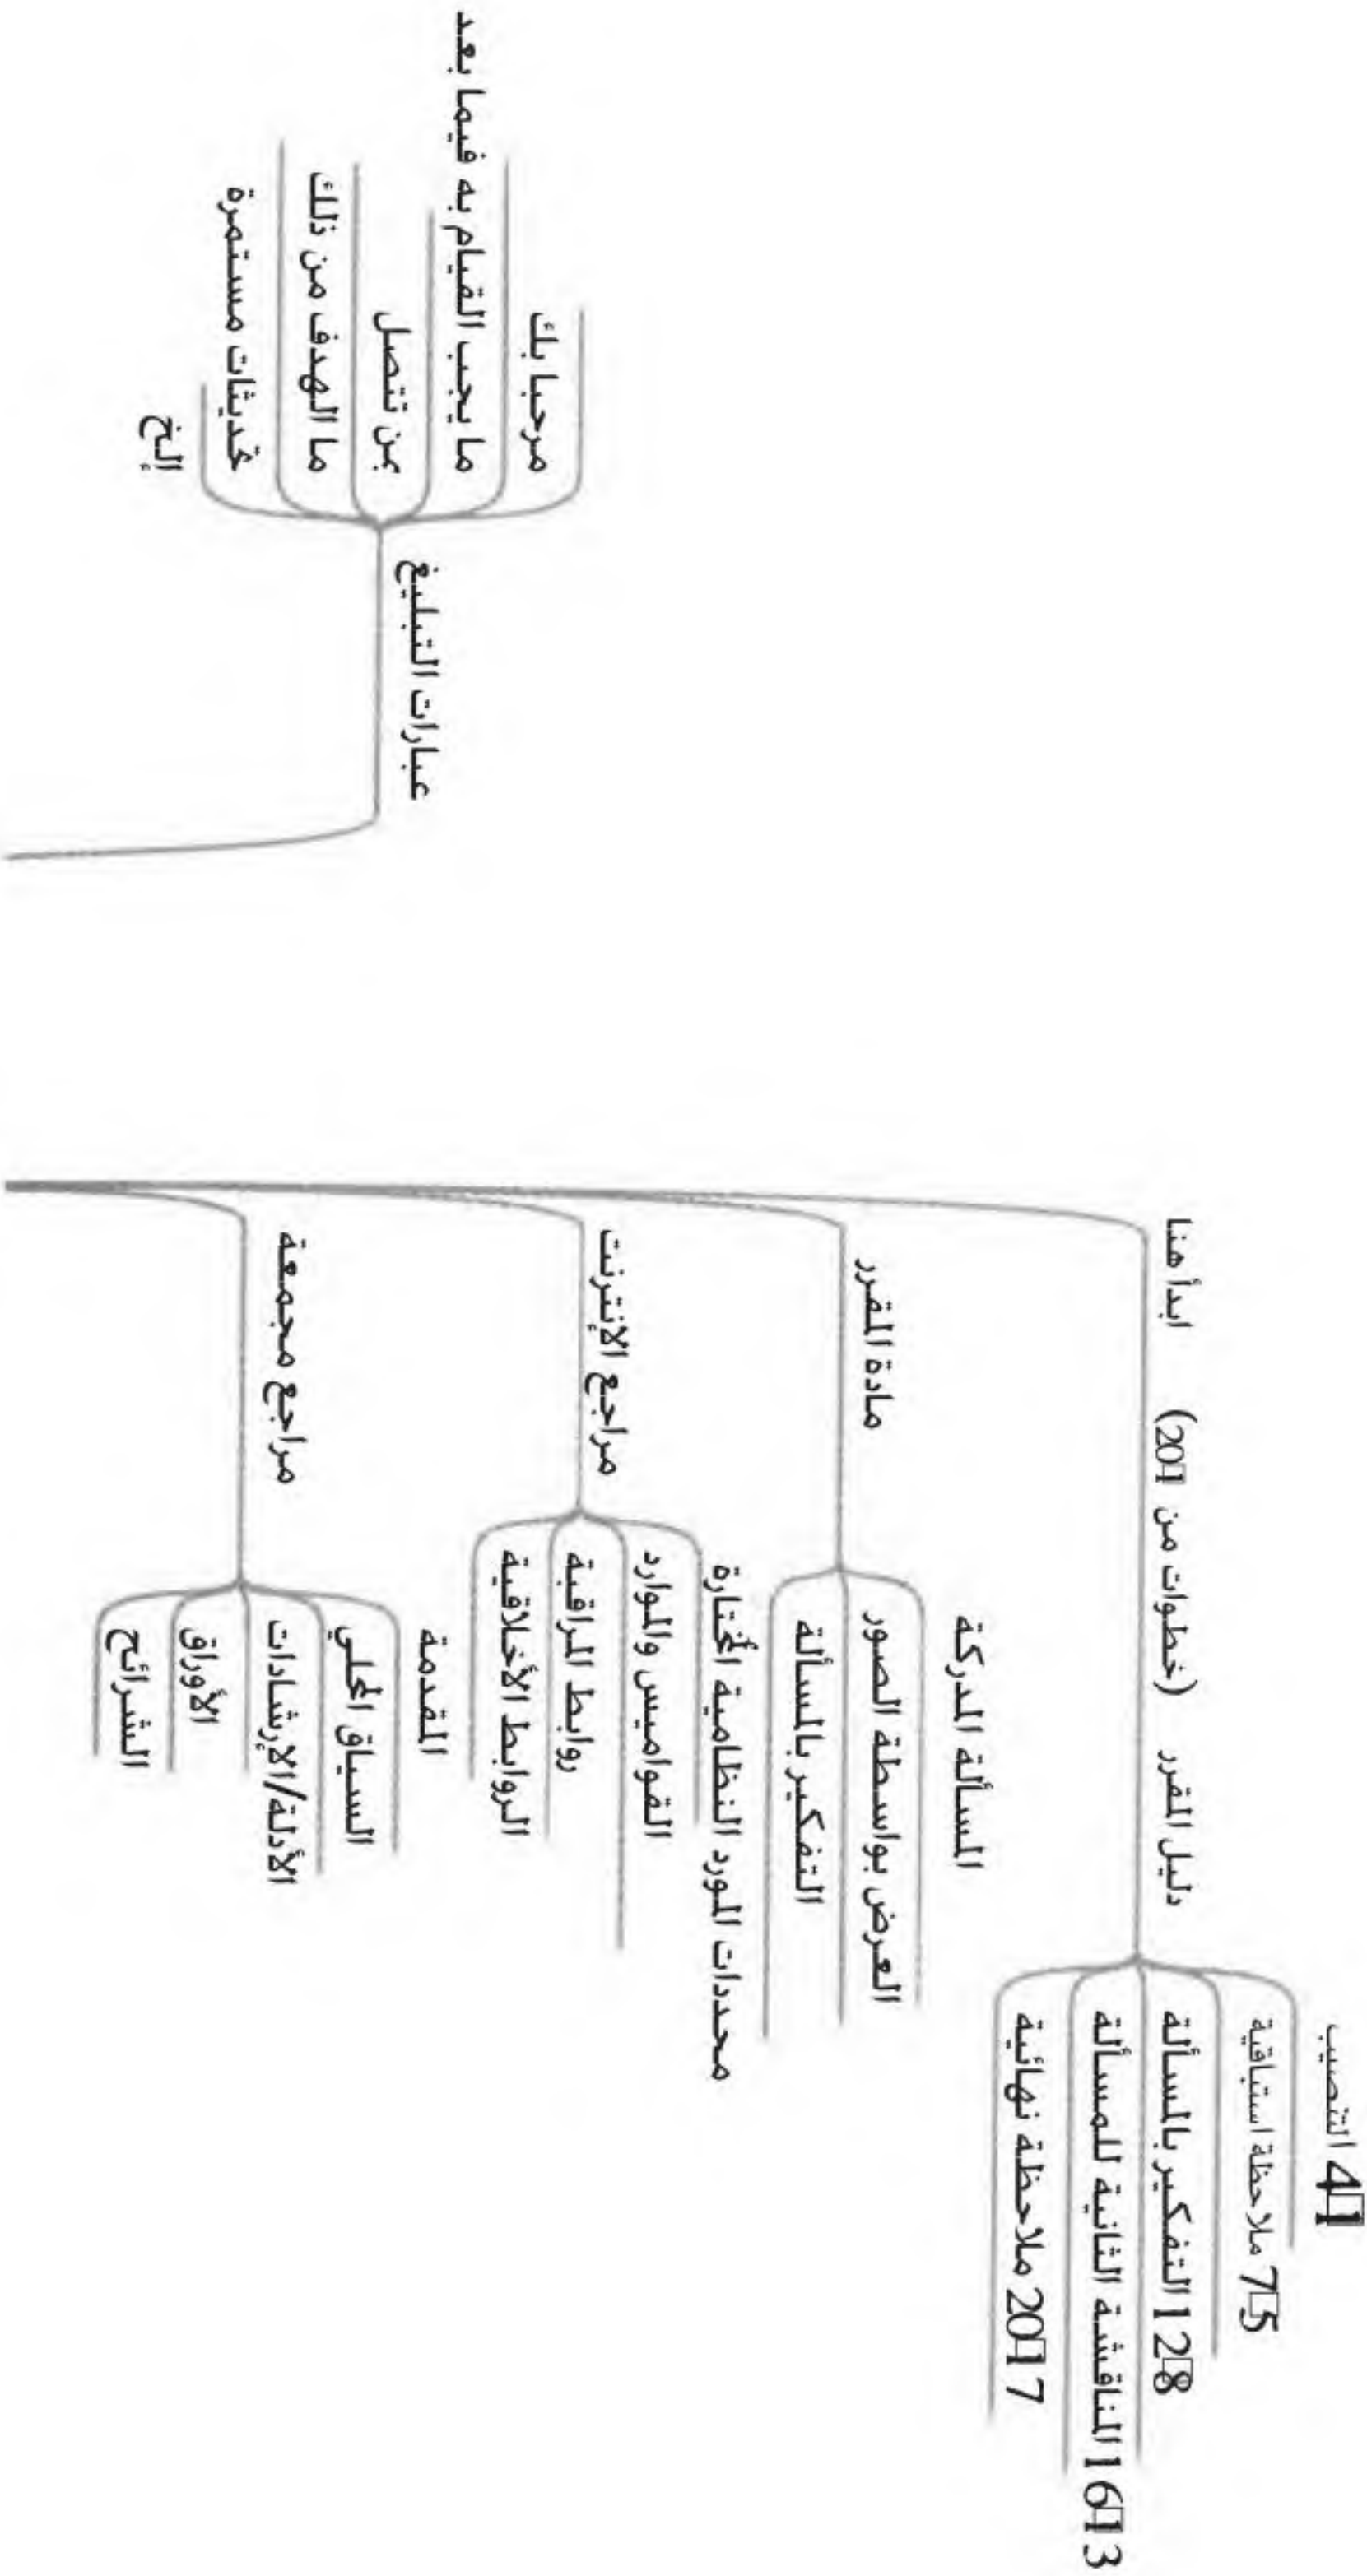 مرحبا بك
ما يجب القيام به فيما بعد
بمن تتصل
ما الهدف من ذلك
تحديثات مستمرة
إلخ
عبارات التبليغ
ابدأ هنا (خطوات من 1□20) دليل المقرر
1□4 التنصيب
5□7 ملاحظة استباقية
8□12 التفكير بالمسألة
13□16 المناقشة الثانية للمسألة
17□20 ملاحظة نهائية
مادة المقرر
المسألة المدركة
العرض بواسطة الصور
التفكير بالمسألة
مراجع الإنترنت
محددات المورد النظامية المختارة
القواميس والموارد
روابط المراقبة
الروابط الأخلاقية
مراجع مجمعة
المقدمة
السياق المحلي
الأدلة/الإرشادات
الأوراق
الشرائح